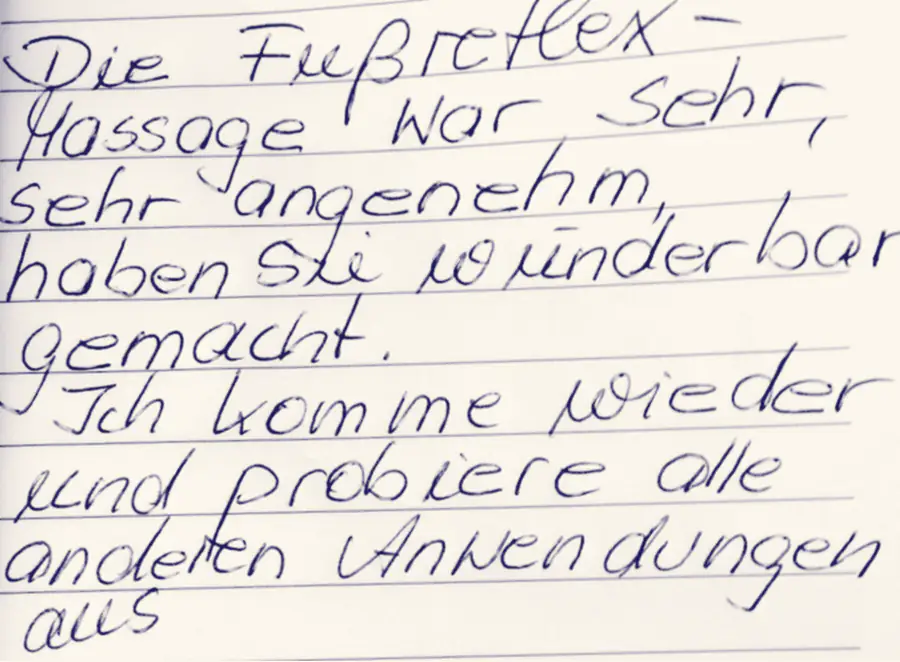 Die Fußreflex-
Massage war sehr,
sehr angenehm,
haben Sie wunderbar
gemacht.
Ich komme wieder
und probiere alle
anderen Anwendungen
aus